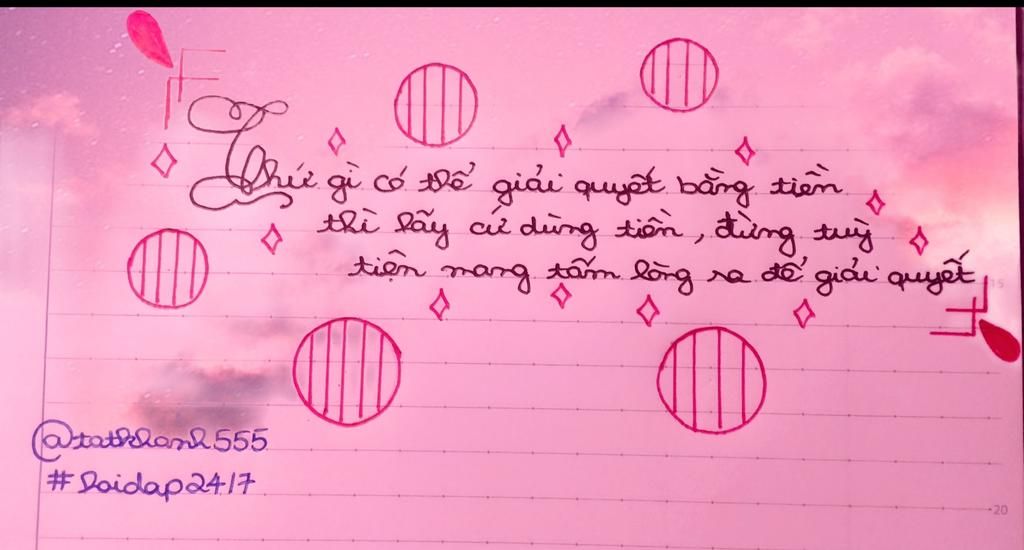 Thứ gì có thể giải quyết bằng tiền
thì hãy cứ dùng tiền, đừng tuỳ
tiện mang tấm lòng ra để giải quyết
15
@tatkhanh555
#hoidap24/7
20